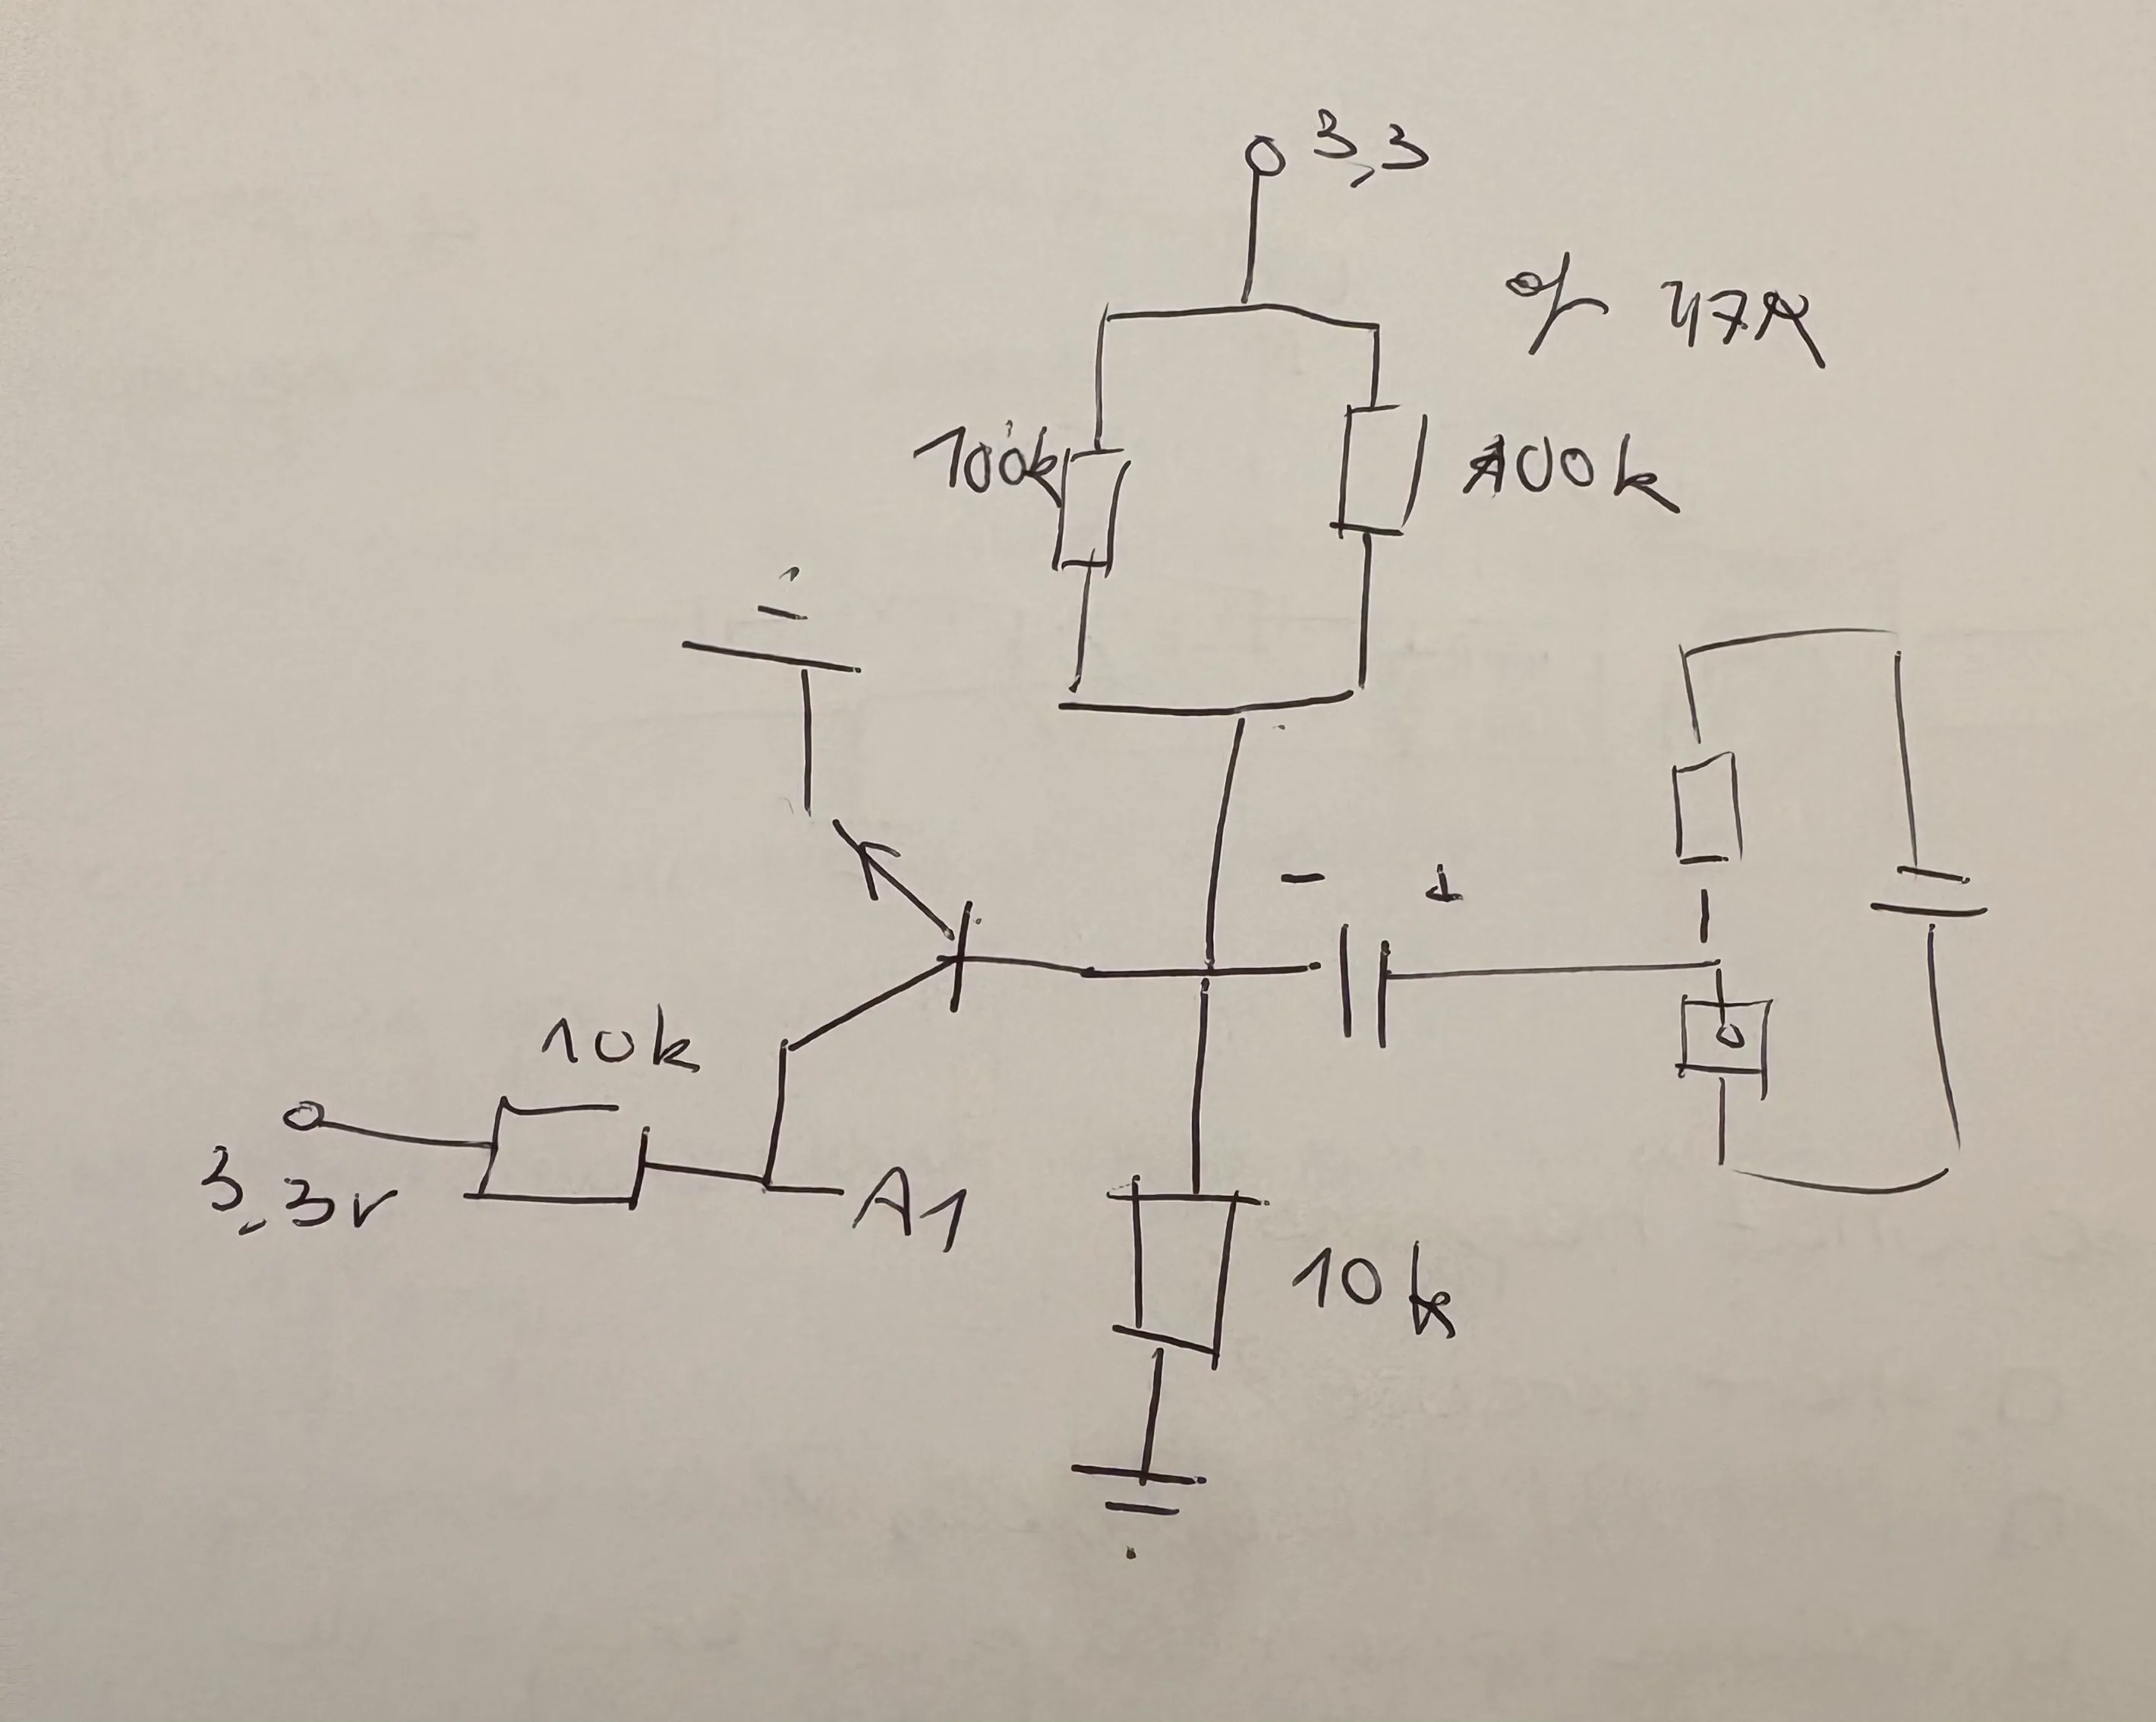 3,3
of 47k
100k
100k
- +
10k
3,3v
A1
10k